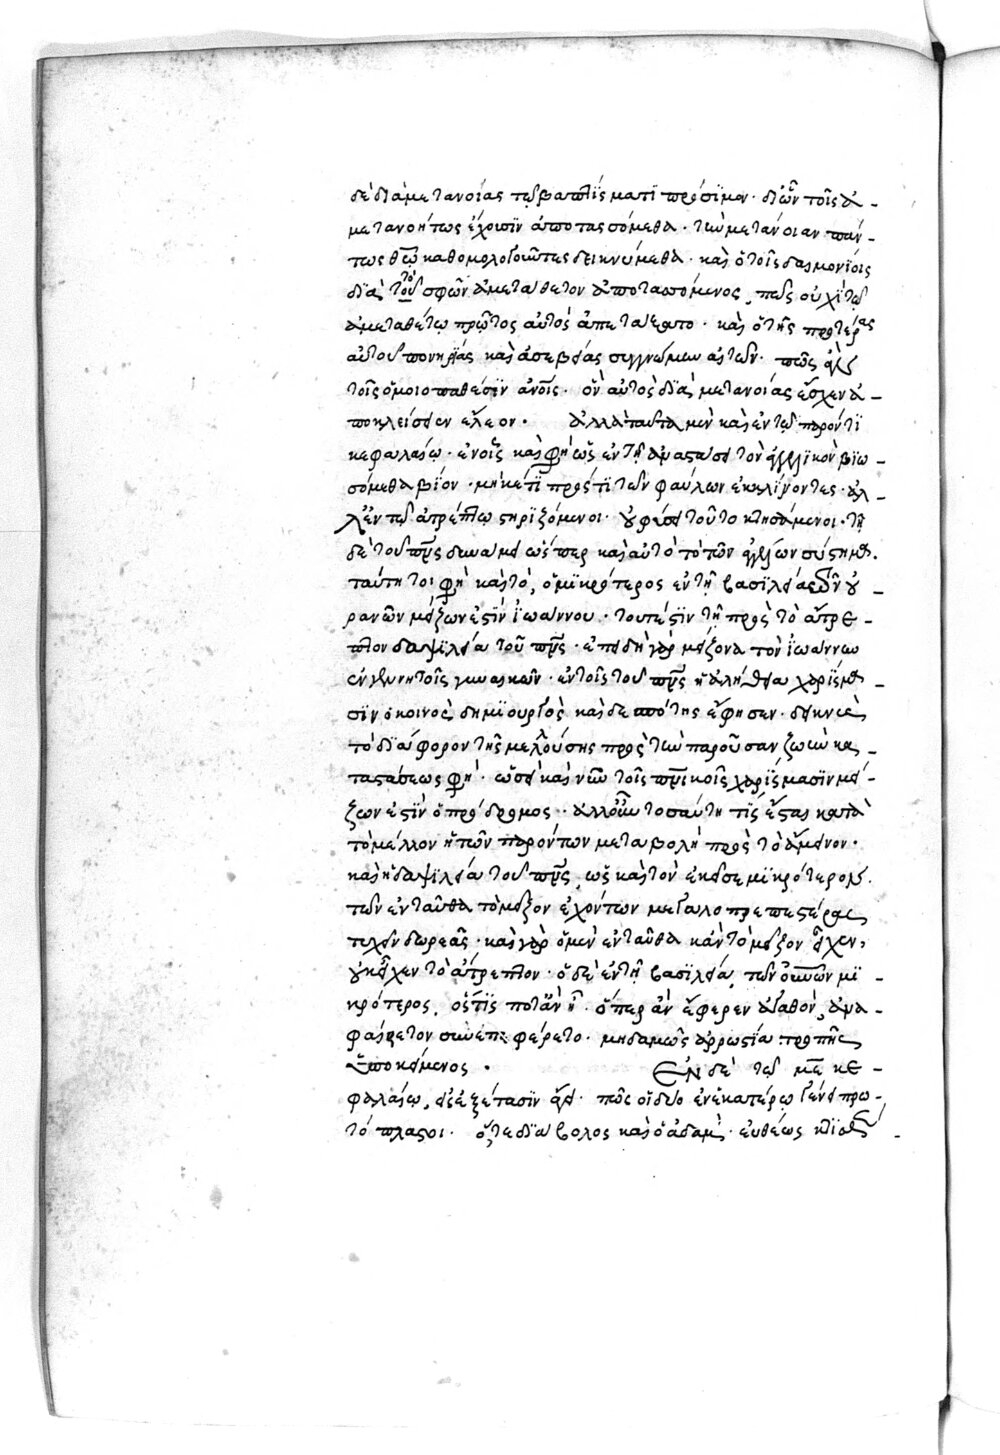 δὲ διὰ μετανοίας τῷ βαπτίσματι πρόσιμεν· δι' ὧν τοῖς ἀ-
μετανοήτως ἔχουσιν ἀποτασσόμεθα· τὴν μετάνοιαν πάν-
τως θῶ καθομολογοῦντες δείκνύμεθα· καὶ ὁ τοῖς δαιμονίοις
διὰ τὸ τοῦ σφῶν ἀμετάθετον ἀποταττόμενος, πῶς οὐχὶ τῷ
ἀμεταθέτῳ πρῶτος αὐτὸς ἀπετάξατο· καὶ ὁ τῆς προτέρας
αὐτοῦ πονηρίας καὶ ἀσεβείας συγγνώμων αἰτῶν· πῶς
τοῖς ὁμοιοπαθέσιν ἀνοις· ὃν αὐτὸς διὰ μετανοίας ἔσχεν ἀ-
ποκλείσειεν ἔλεον· ἀλλὰ ταῦτα μὲν καὶ ἐν τῷ παρόντι
κεφαλαίῳ· ἐν οἷς καὶ φὴ ὡς ἐν τῇ ἀναστάσει τὸν ἀγγελικὸν βιω-
σόμεθα βίον· μηκέτι πρός τι τῶν φαύλων ἐκκλίνοντες· ἀλ-
λ' ἐν τῷ ἀτρέπτῳ στηριζόμενοι· φύσει τοῦτο κτησάμενοι· τῇ
δὲ τοῦ πνς δυνάμει ὥσπερ καὶ αὐτὸ τὸ τῶν ἀγγέλων σύστημα·
ταύτῃ τοι φησὶ καὶ τὸ, ὁ μικρότερος ἐν τῇ βασιλείᾳ τῶν οὐ-
ρανῶν μείζων ἐστὶν ἰωάννου· τουτέστιν τῇ πρὸς τὸ ἄτρε-
πτον δαψιλείᾳ τοῦ πνς· ἐπειδὴ γὰρ μείζονα τὸν ἰωάννην
ἐν γεννητοῖς γυναικῶν· ἐν τοῖς τοῦ πνς ἡ ἀλήθεια χαρίσμα-
σιν ὁ κοινὸς δημιουργὸς καὶ δεσπότης ἔφησεν· δεικνὺς
τὸ διάφορον τῆς μελλούσης πρὸς τὴν παροῦσαν ζωὴν κα-
ταστάσεως φὴ· ὡσεὶ καὶ νῦν τοῖς πνικοῖς χαρίσμασιν μεί-
ζων ἐστὶν ὁ πρόδρομος· ἀλλ' οὖν τοσαύτη τίς ἔσται κατὰ
τὸ μέλλον ἡ τῶν παρόντων μεταβολὴ πρὸς τὸ ἄμεινον·
καὶ ἡ δαψίλεια τοῦ πνς, ὡς καὶ τὸν ἐκεῖσε μικρότερον.
τῶν ἐνταῦθα τὸ μεῖζον ἐχόντων μεγαλοπρεπεστέρας
τυχεῖν δωρεᾶς· καὶ γὰρ ὁ μὲν ἐνταῦθα κἂν τὸ μεῖζον εἶχεν,
οὐκ εἶχεν τὸ ἄτρεπτον· ὁ δὲ ἐν τῇ βασιλείᾳ τῶν οὐνῶν μι-
κρότερος, ὅστις ποτ' ἂν ᾖ· ὅπερ ἂν ἔφερεν ἀγαθὸν, ἀνα-
φαίρετον συνεπεφέρετο· μηδαμῶς ἀρρωστίᾳ τροπῆς
ὑποκείμενος· ἐν δὲ τῷ μεῖ κε-
φαλαίῳ, εἰς ἐξέτασιν ἄγει· πῶς οἱ δύο ἐν ἑκατέρῳ γένει πρω-
τόπλαστοι· ὅ, τε διάβολος καὶ ὁ ἀδάμ· εὐθέως κτισθέν-